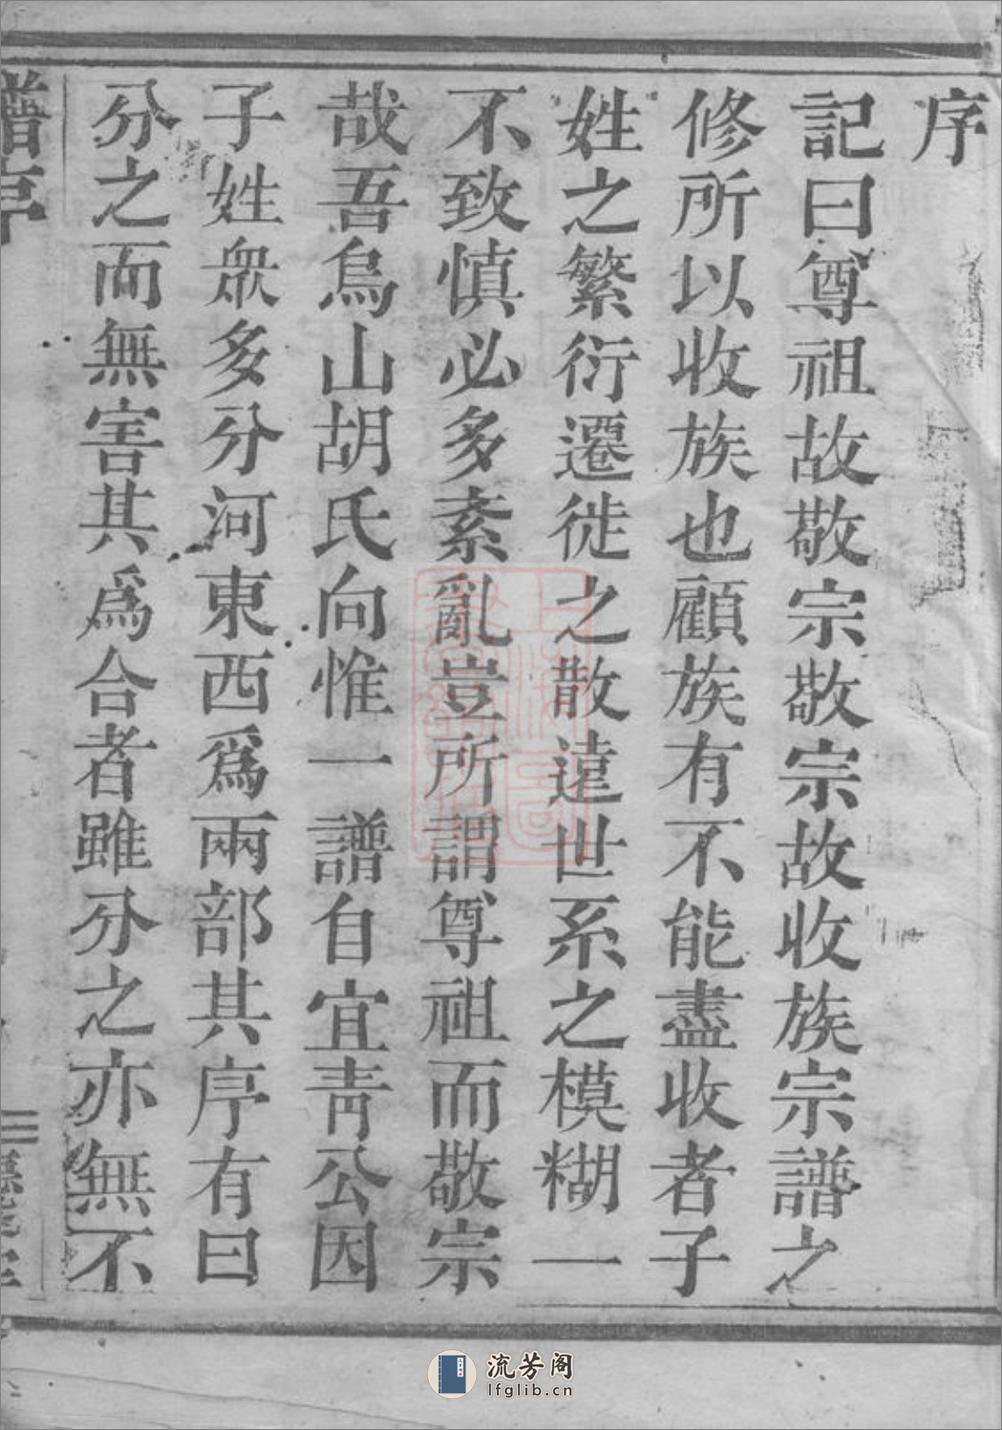 序
記曰尊祖故敬宗敬宗故收族宗譜之
修所以收族也顧族有不能盡收者子
姓之繁衍遷徙之散遠世系之模糊一
不致慎必多紊亂豈所謂尊祖而敬宗
哉吾烏山胡氏向惟一譜自宜青公因
子姓衆多分河東西爲兩部其序有曰
分之而無害其爲合者雖分之亦無不
譜序
流芳阁
lfglib.cn